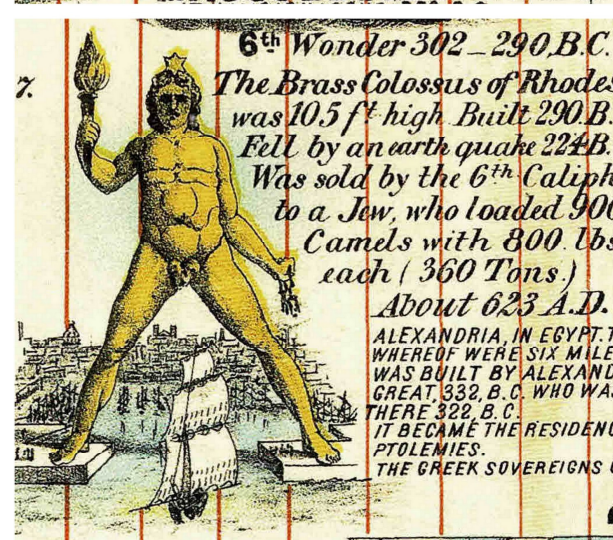 7.
6th Wonder 302_290, B.C.
The Brass Colossus of Rhodes
was 105 ft high Built 290.B.
Fell by an earth quake 224B.
Was sold by the 6th Caliph
to a Jew, who loaded 900
Camels with 800. lbs
each (360 Tons.)
About 623 A.D.
ALEXANDRIA, IN EGYPT. T
WHEREOF WERE SIX MILE
WAS BUILT BY ALEXAND
GREAT, 332, B.C. WHO WAS
THERE 322, B.C.
IT BECAME THE RESIDENC
PTOLEMIES.
THE GREEK SOVEREIGNS